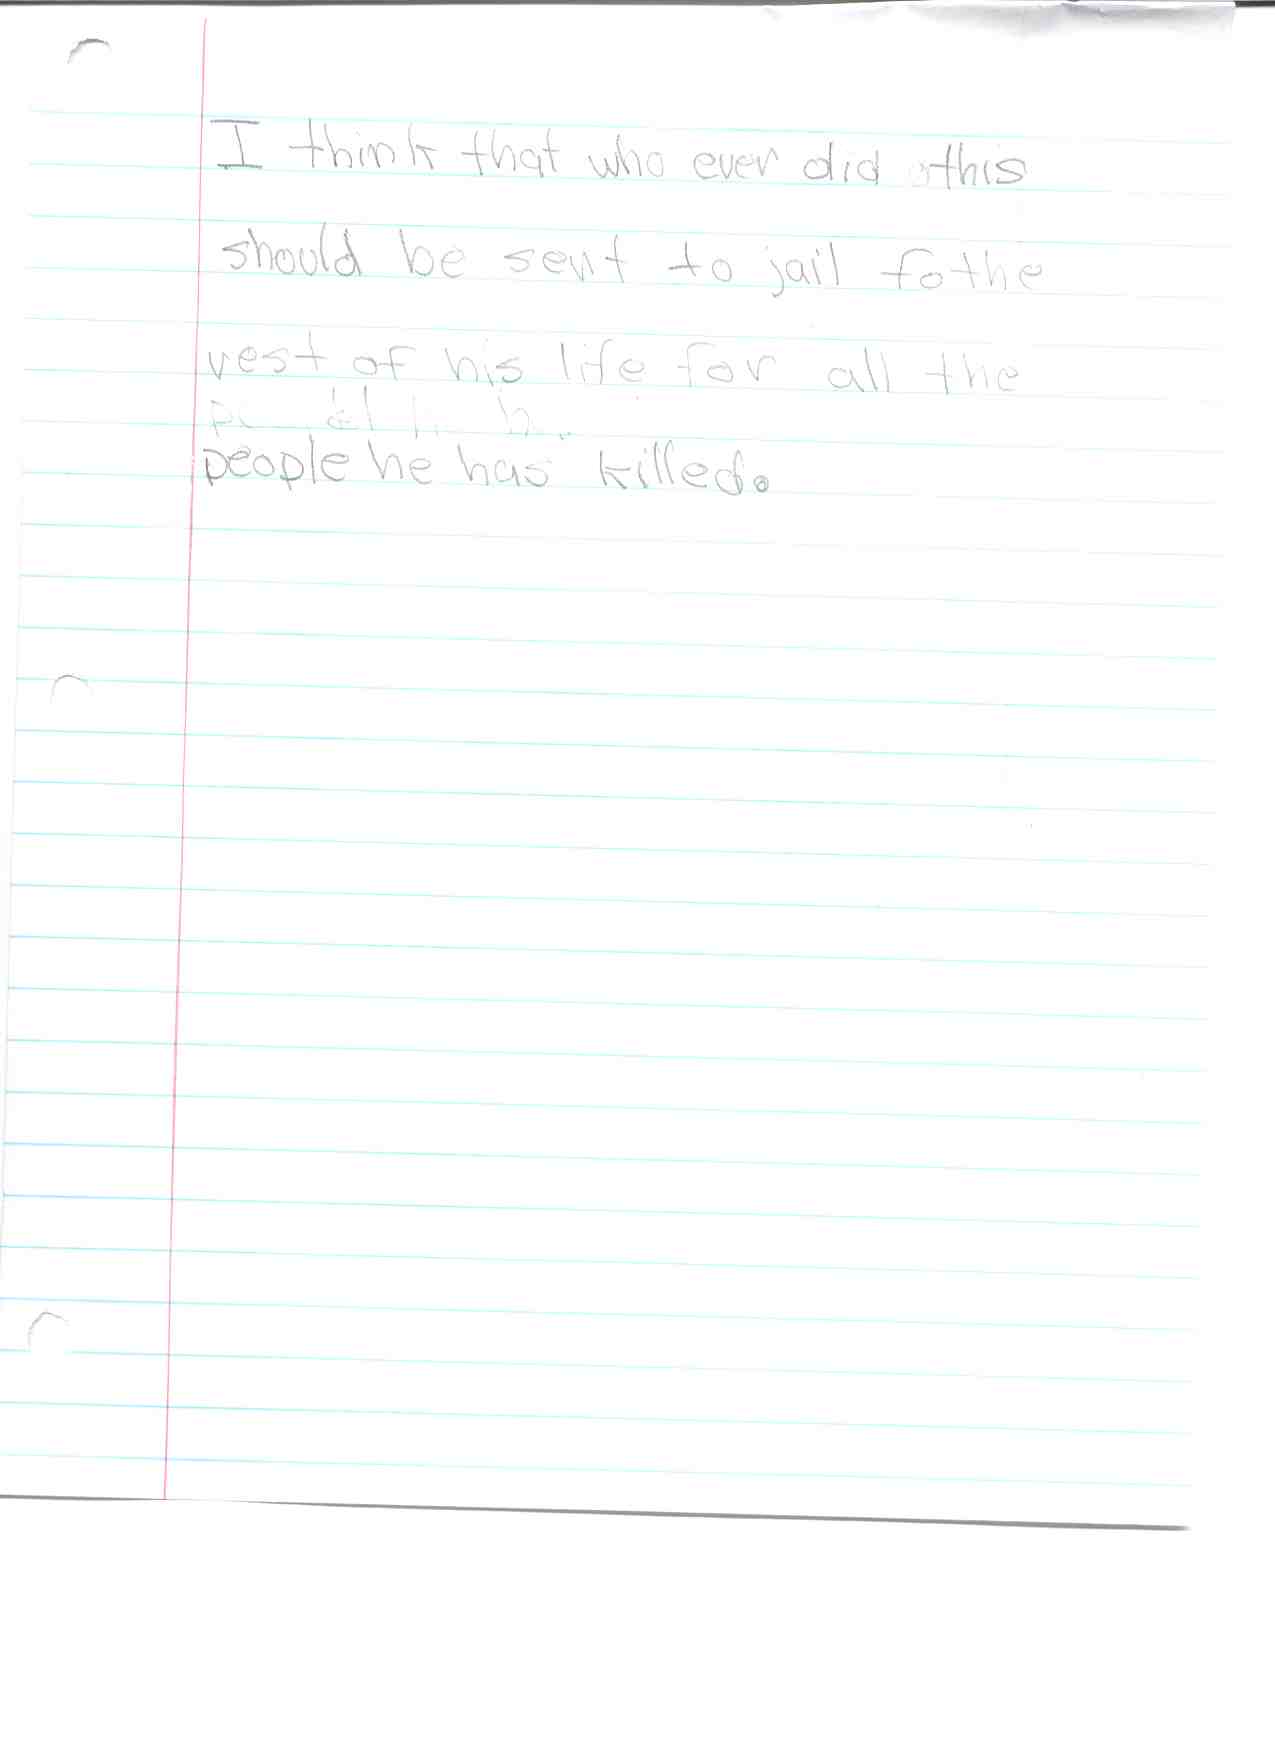 I think that who ever did this
should be sent to jail fo the
rest of his life for all the
people he has killed.